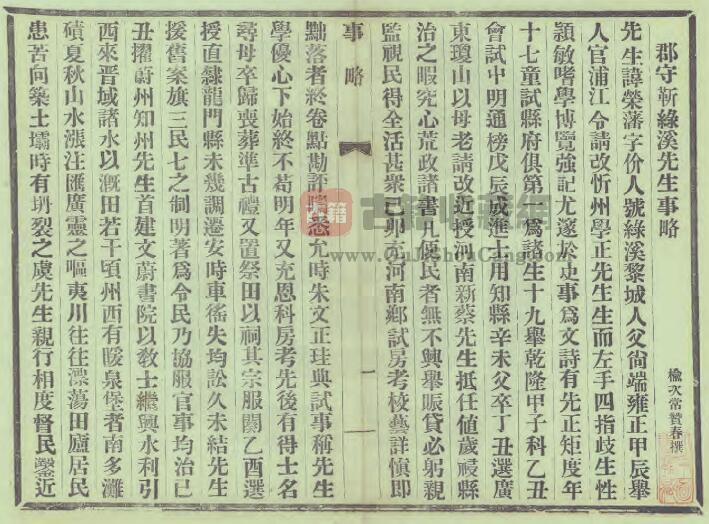 郡守靳綠溪先生事略
榆次常贊春撰
先生諱榮藩字价人號綠溪黎城人父尙端雍正甲辰舉
人官浦江令請改忻州學正先生生而左手四指歧生性
穎敏嗜學博覽強記尤邃於史事爲文詩有先正矩度年
十七童試縣府俱第一爲諸生十九舉乾隆甲子科乙丑
會試中明通榜戊辰成進士用知縣辛未父卒丁丑選廣
東瓊山以母老請改近授河南新蔡先生抵任値歲祲縣
治之暇究心荒政諸書凡便民者無不興舉賑貸必躬親
監視民得全活甚衆己卯充河南鄉試房考校藝詳愼即
事略
一
黜落者終卷點勘評隲悉允時朱文正珪典試事稱先生
學優心下始終不苟明年又充恩科房考先後有得士名
尋母卒歸喪葬準古禮又置祭田以祠其宗服闋乙酉選
授直隸龍門縣未幾調遷安時車徭失均訟久未結先生
援舊案旗三民七之制明著爲令民乃協服官事均治已
丑擢蔚州知州先生首建文蔚書院以敎士繼興水利引
西來晋域諸水以溉田若干頃州西有暖泉堡者南多灘
磧夏秋山水漲注匯廣靈之嘔夷川往往漂蕩田廬居民
患苦向築土壩時有坍裂之虞先生親行相度督民鑿近
古籍
古籍收藏网
www.GuJiShouCang.com